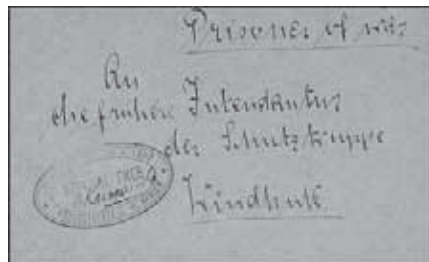 Prisoner of war
An
die frühere Intendantur
der Schutztruppe
Windhuk